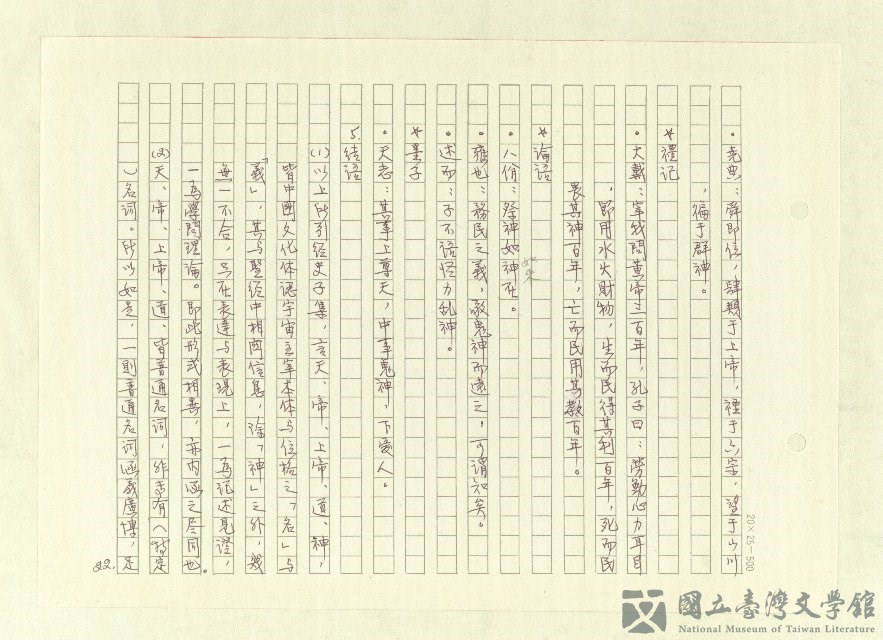 。堯典：舜即位，肆類于上帝，禋于六宗，望于山川
，徧于群神。
*禮記
。大戴：宰我問黃帝三百年，孔子曰：勞勤心力耳目
，節用水火財物，生而民得其利百年，死而民
畏其神百年，亡而民用其教百年。
*論語
。八佾：祭神如神在。
。雍也：務民之義，敬鬼神而遠之，可謂知矣。
。述而：子不語怪力乱神。
*墨子
。天志：其事上尊天，中事鬼神，下愛人。
5.結語
(1)以上所引经史子集，言天、帝、上帝、道、神，
皆中國文化体認宇宙主宰本体与位格之「名」与
「義」，其与聖经中相関信息，除「神」之外，幾
無一不合，只在表達与表現上，一為記述見證，
一為學問理論。即此形式相異，亦内涵之尽同也。
(2)天、帝、上帝、道、皆普通名词，非専有（特定
）名词。所以如是，一則普通名词涵義廣博，足
22.
20×25=500
國立臺灣文學館
National Museum of Taiwan Literature